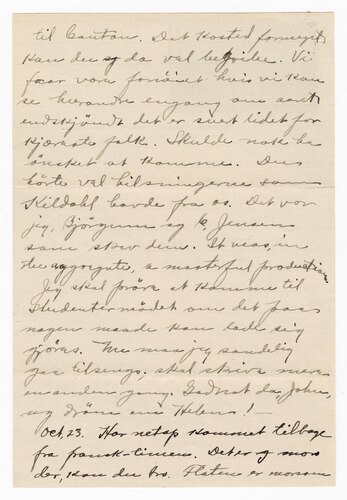 til Canton. Det kosted formeget
kan du da vel begribe. Vi
faar være fornöiet hvis vi kan
se hverandre engang om aaret
endskjöndt det er svært lidet for
kjæreste folk. Skulde nok ha
önsket at komme. Du
hörte vel hilsningerne som
Kildahl havde fra os. Det var
jeg, Björgum og C. Jensen
som skrev dem. It was, in
the aggregate, a masterful production
Jeg skal pröve at komme til
Studentermödet om det paa
nogen maade kan lade sig
gjöres. Nu maa jeg sandelig
gaa tilsengs. skal skrive mere
en anden gang. Godnat da, John,
og dröm om Helen! —
Oct. 23. Har netop kommet tilbage
fra fransk-timen. Det er g mor
der, kan du tro. Flaten er morsom